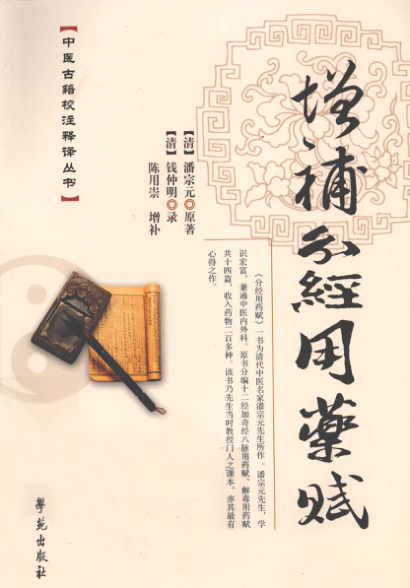 增補分經用藥赋
【中医古籍校注释译丛书】
【清】潘宗元◎原著
【清】钱仲明◎录
陈用崇 增补
《分经用药赋》一书为清代中医名家潘宗元先生所作。潘宗元先生,学
识宏富,兼通中医内外科。原书分编十二经加奇经八脉用药赋、解毒用药赋
共十四篇,收入药物二百多种。该书乃先生当时教授门人之课本,亦其最有
心得之作。
學苑出版社